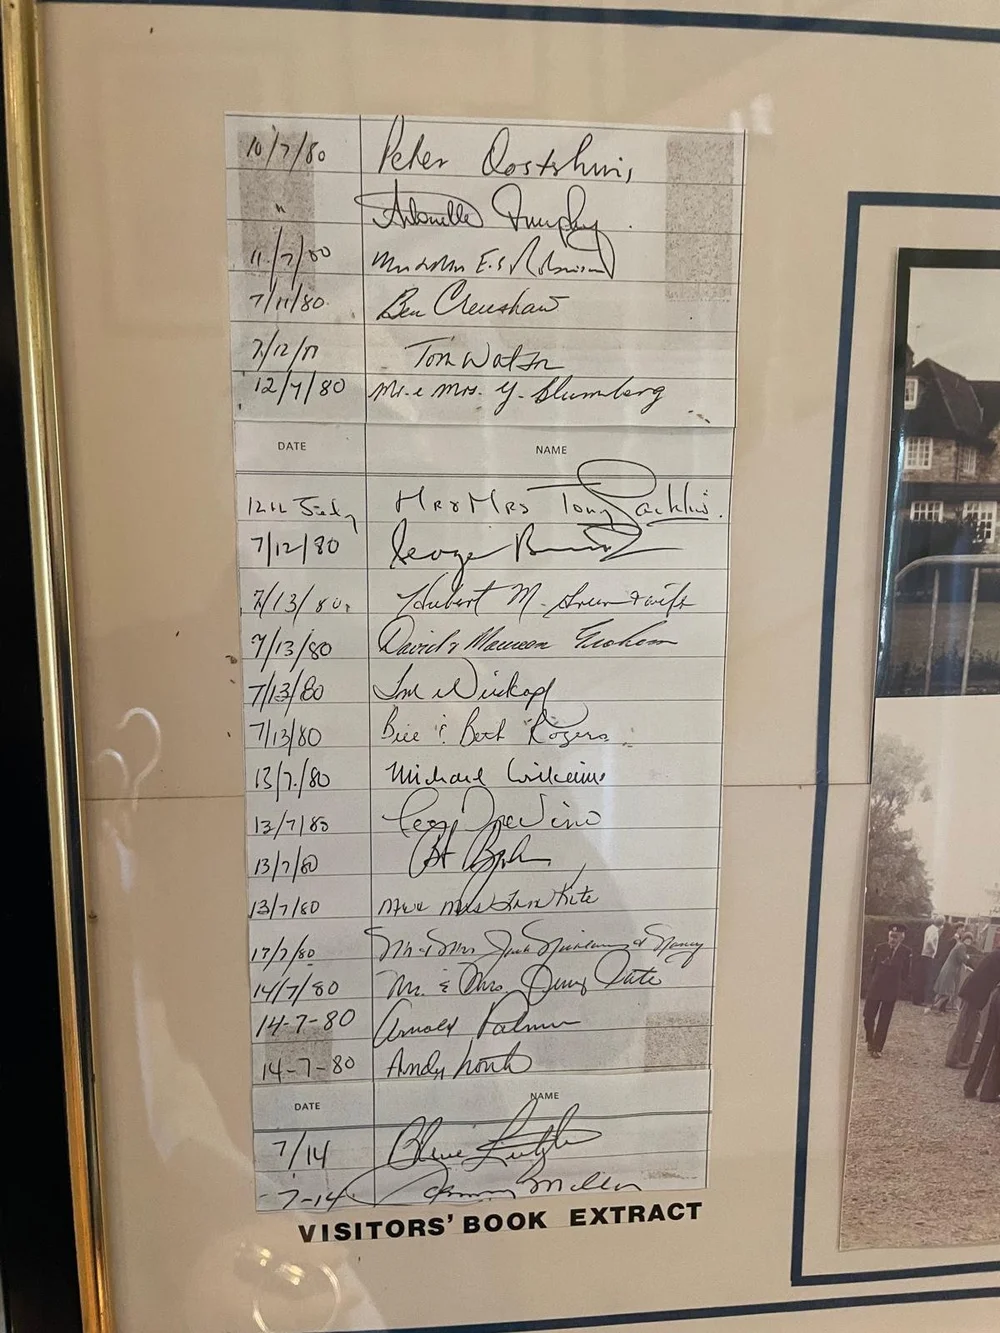 10/7/80 Peter Oosterhuis
" Antoinette Murphy
11/7/80 Mr & Mrs E.S. Robinson
7/11/80 Ben Crenshaw
7/12/ Tom Watson
12/7/80 Mr. & Mrs. Y. Blumberg
DATE NAME
12th July Mr & Mrs Tony Jacklin.
7/12/80 George Burns
7/13/80 Hubert M. Green & wife
7/13/80 David & Maureen Graham
7/13/80 Tom Weiskopf
7/13/80 Bill & Beth Rogers
13/7/80 Michael
13/7/80 Trevino
13/7/80
13/7/80 Mr & Mrs Tom Kite
17/7/80 Mr & Mrs Jack Nicklaus & Nancy
14/7/80 Mr. & Mrs. Jerry Pate
14-7-80 Arnold Palmer
14-7-80 Andy North
DATE NAME
7/14
7-14 Johnny Miller
VISITORS' BOOK EXTRACT